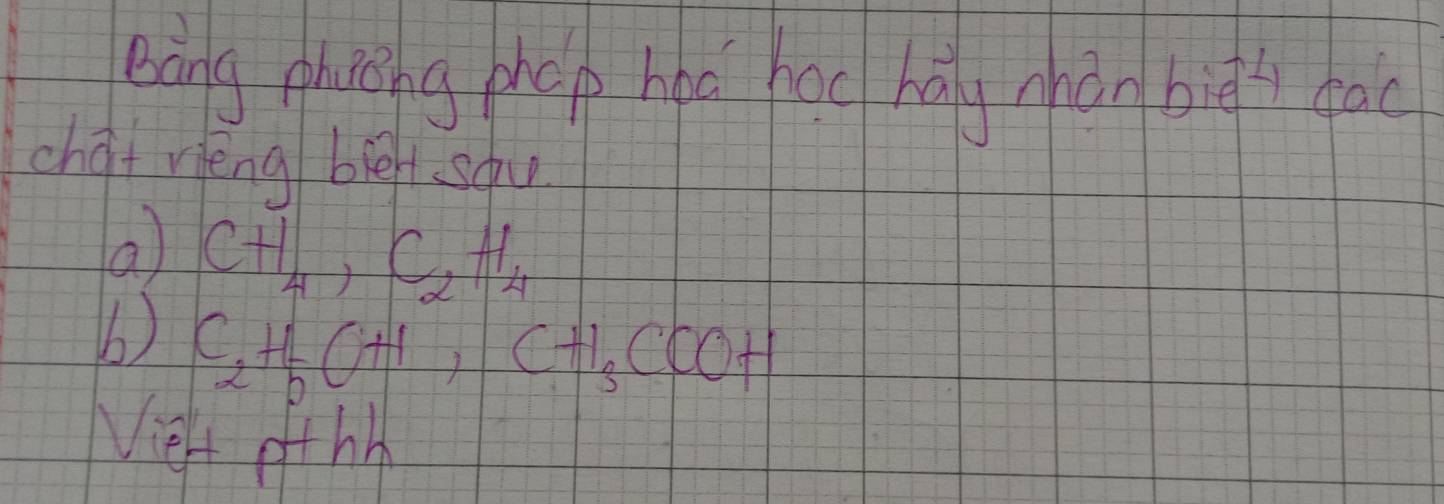 Bằng phương pháp hoá học hãy nhận biết các
chất riêng biệt sau.
a) CH₄, C₂H₄
b) C₂H₅OH, CH₃COOH
Viết pthh